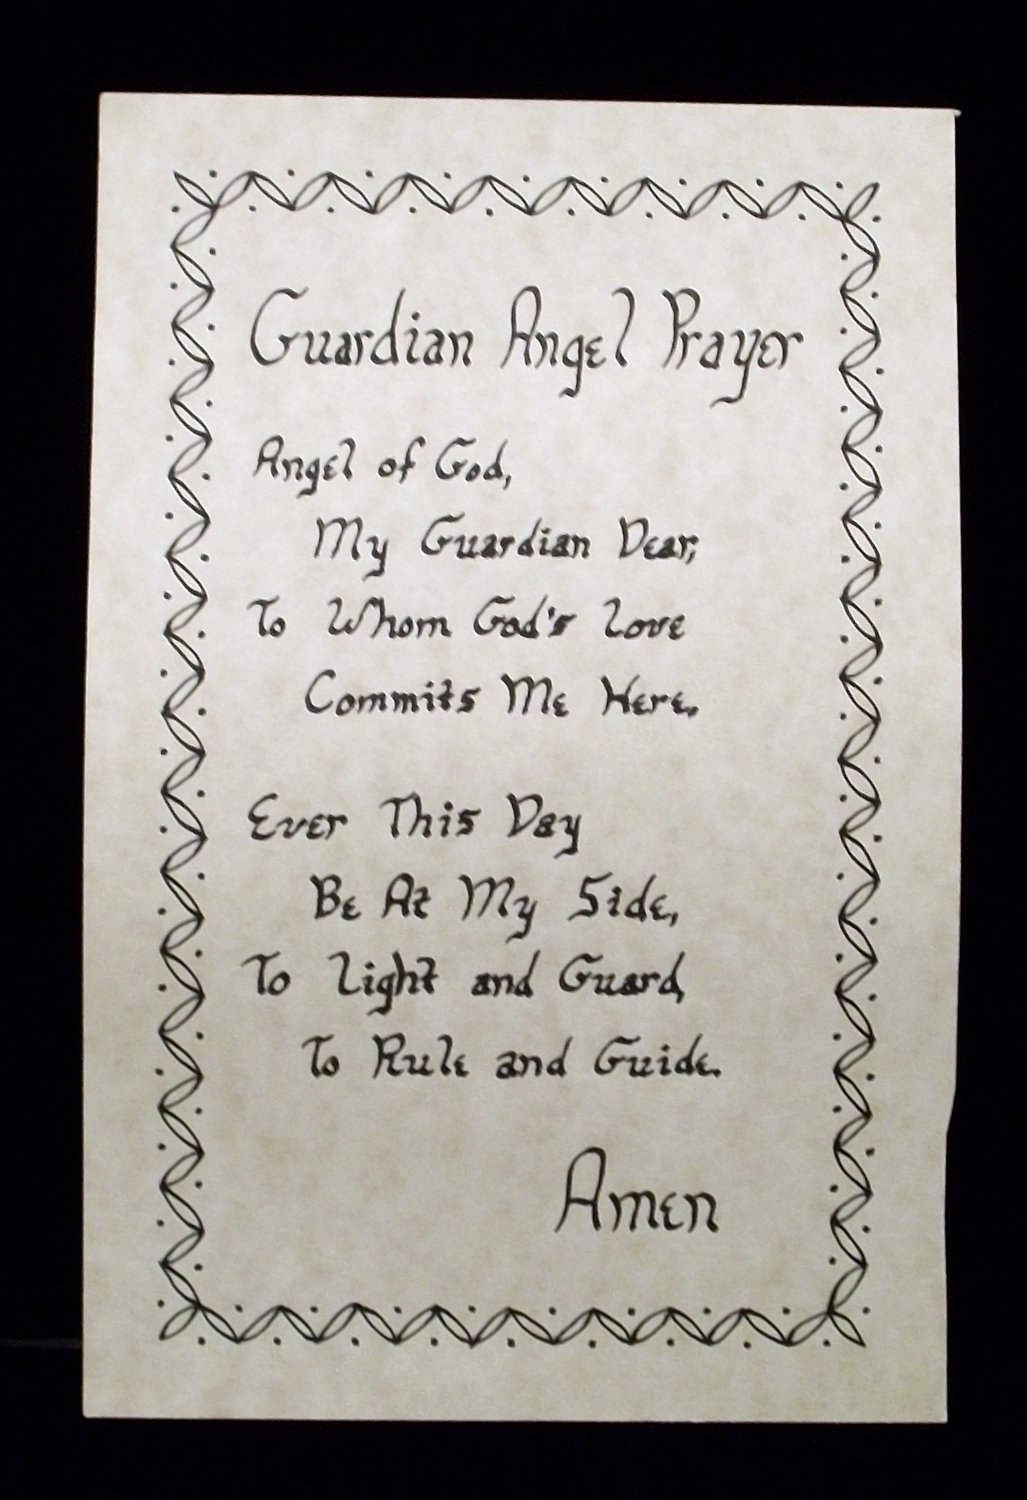 Guardian Angel Prayer
Angel of God,
My Guardian Dear,
To Whom God's Love
Commits Me Here.
Ever This Day
Be At My Side,
To Light and Guard,
To Rule and Guide.
Amen